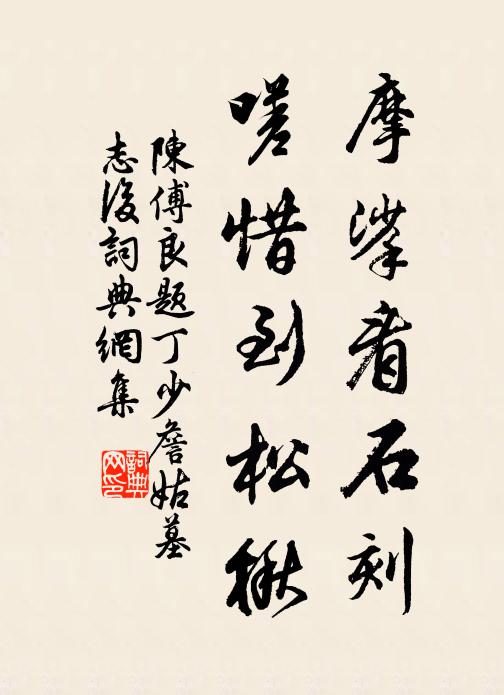 摩挲看石刻
嗟惜到松楸
陳傅良題丁少詹姑墓
志後詞典網集
詞典網印